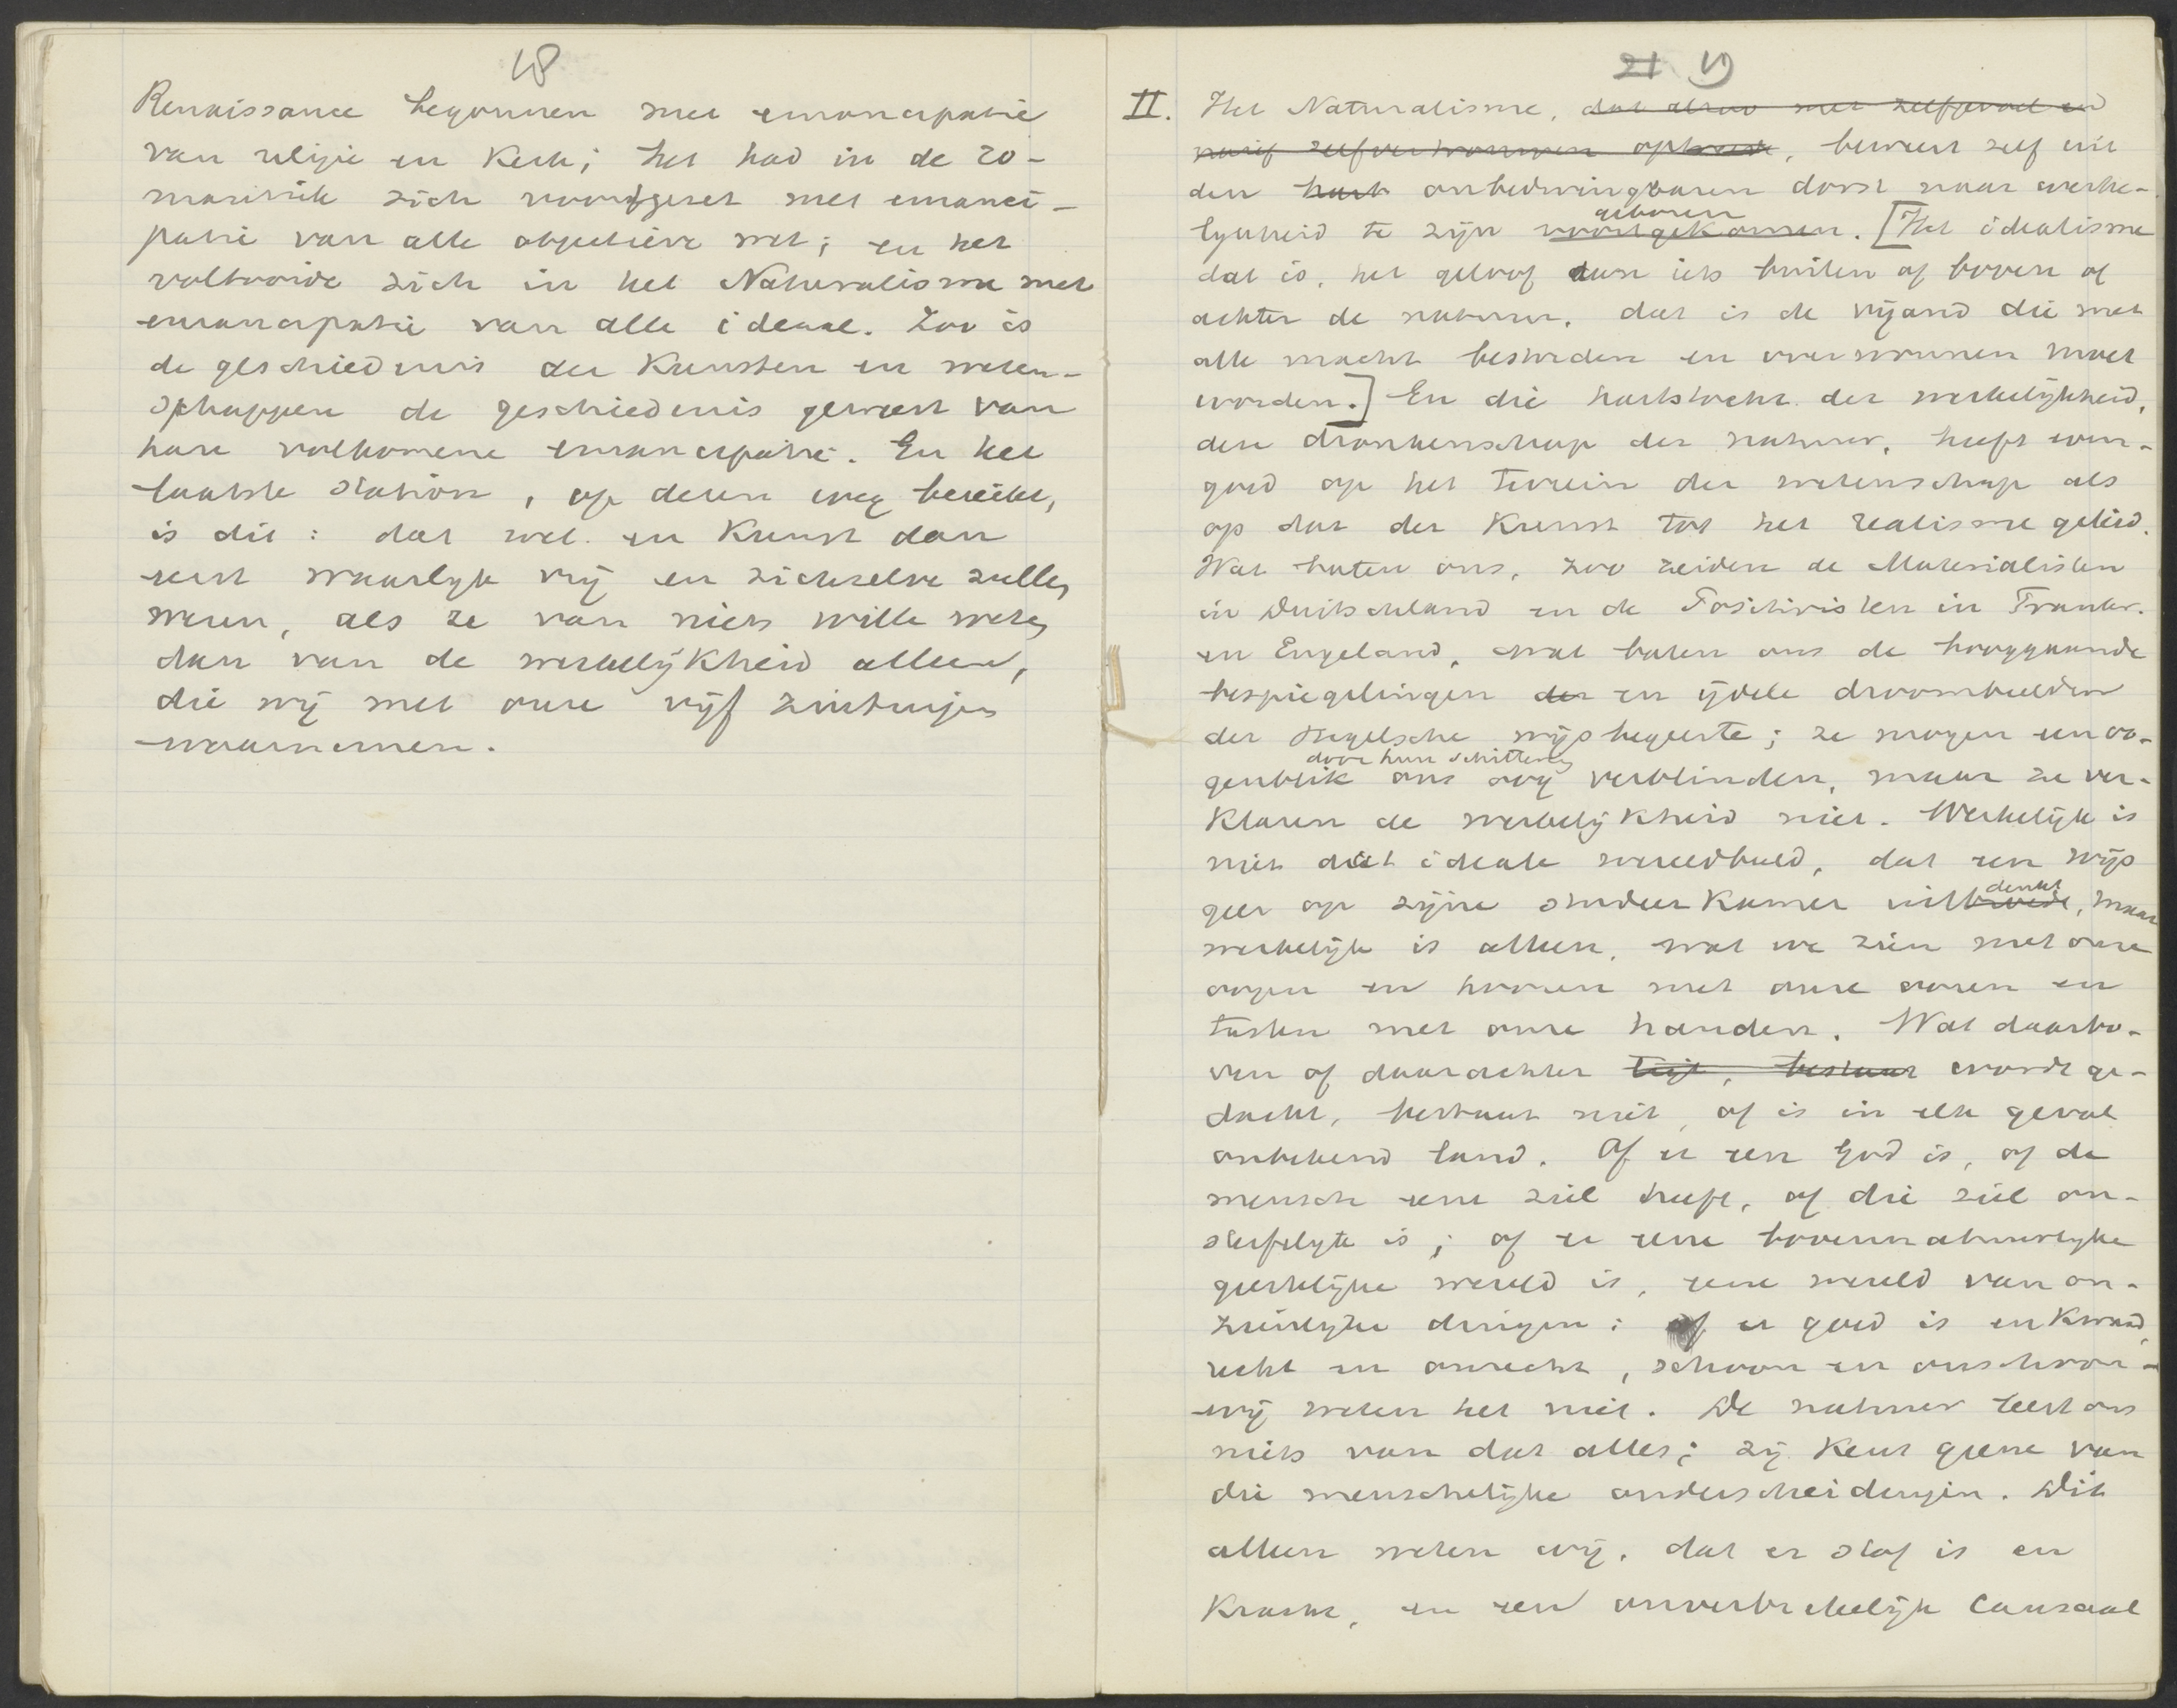 18
Renaissance begonnen met emancipatie
van religie en Kerk; het had in de ro-
mantiek zich voortgezet met emanci-
patie van alle objectieve wet; en het
voltooide zich in het Naturalisme met
emancipatie van alle ideaal. Zoo is
de geschiedenis der Kunsten en weten-
schappen de geschiedenis geweest van
hare volkomene emancipatie. En het
laatste station, op dezen weg bereikt,
is dit: dat wet. en Kunst dan
eerst waarlyk vrij en zichzelve zullen
wezen, als ze van niets wille weten
dan van de werkelijkheid alleen,
die wij met onze vijf zintuigen
waarnemen.
21 19
II. Het Naturalisme, dat alzoo met zelfgevoel en
naief zelfvertrouwen optreedt, beweert zelf uit
den onbedwingbaren dorst naar werke-
geboren
lykheid te zijn voortgekomen. [Het idealisme
dat is, het geloof aan iets buiten of boven of
achter de natuur, dat is de vijand die met
alle macht bestreden en overwonnen moet
worden.] En die hartstocht der werkelijkheid,
die dronkenschap der natuur, heeft even-
goed op het terrein der wetenschap als
op dat der Kunst tot het realisme geleid.
Wat baten ons, zoo zeiden de Materialisten
in Duitschland en de Positivisten in Frankr.
en Engeland, wat baten ons de hooggaande
bespiegelingen der en ijdele droombeelden
der Hegelsche wijsbegeerte; ze mogen een oo-
door hun schittering
genblik ons oog verblinden, maar ze ver-
klaren de werkelijkheid niet. Werkelijk is
niet dat ideale wereldbeeld, dat een wijs
denkt
geer op zijne studeerkamer uitbroedt, maar
werkelijk is alleen, wat we zien met onze
oogen en hooren met onze ooren en
tasten met onze handen. Wat daarbo-
ven of daarachter ligt, bestaat wordt ge-
dacht, bestaat niet, of is in elk geval
onbekend land. Of er een God is, of de
mensch eene ziel heeft, of die ziel on-
sterfelyk is; of er eene bovennatuurlyke
geestelijke wereld is, eene wereld van on-
zienlyke dingen; of er goed is en Kwaad,
recht en onrecht, schoon en onschoon -
wij weten het niet. De natuur leert ons
niets van dat alles; zij Kent geene van
die menschelijke onderscheidingen. Dit
alleen weten wij, dat er stof is en
Kracht, en een onverbrekelijk causaal